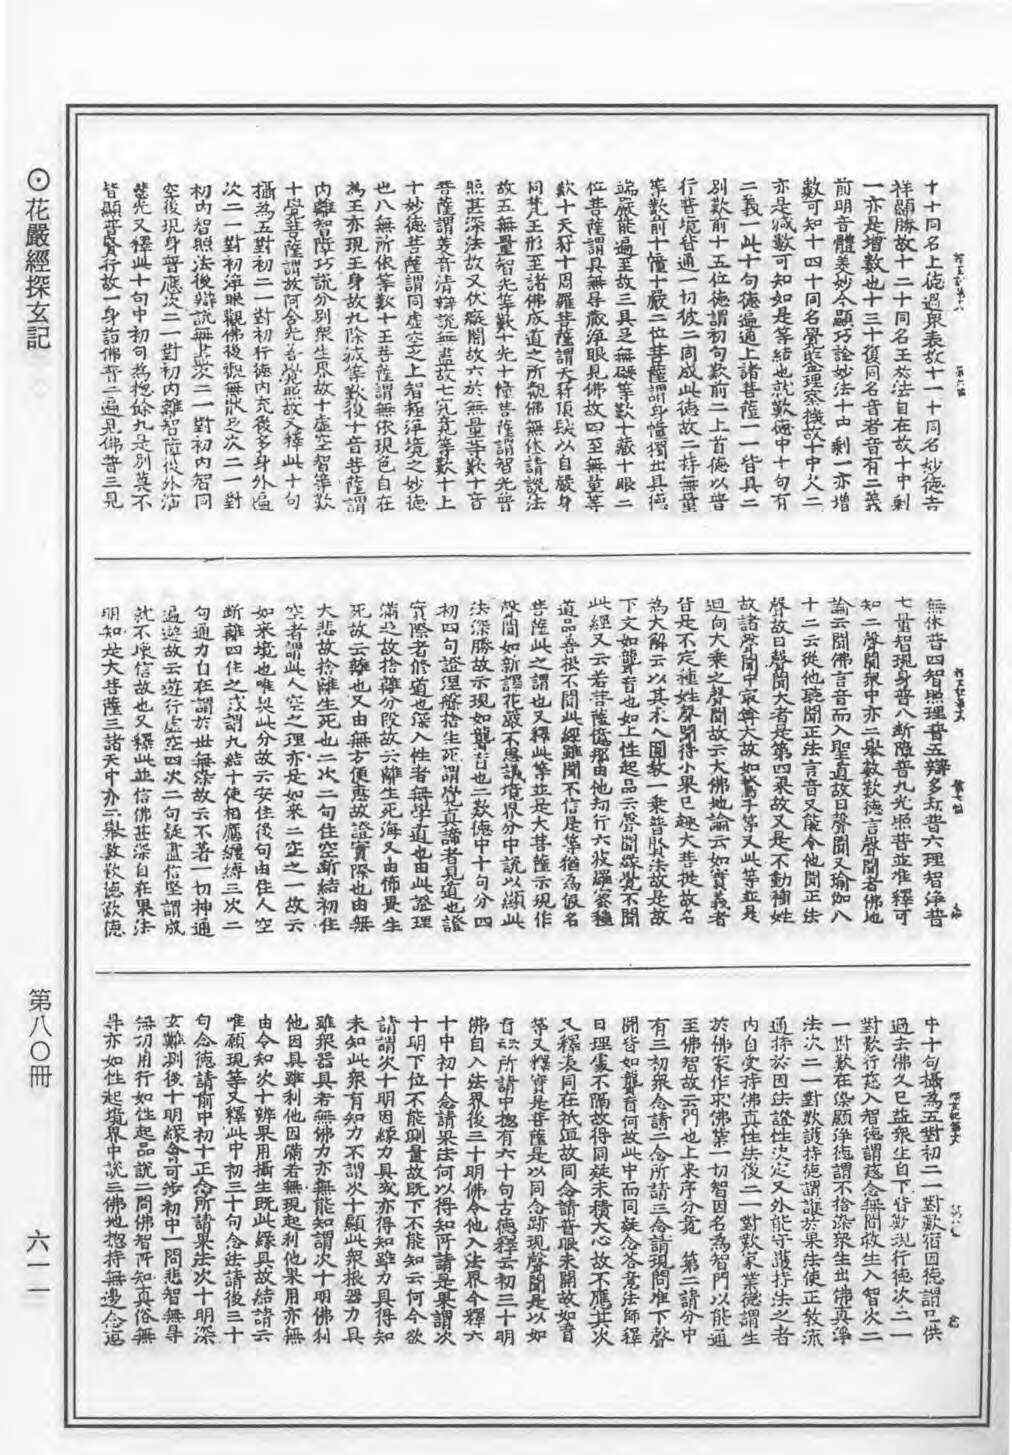 十十同名上德過衆表故十一十同名妙德吉
祥闢勝故十二十同名王於法自在故十中剩
一亦是增數也十三十復同名音者音有二義
前明音體美妙今顯巧詮妙法十十四剩一亦增
數可知十四十同名覺監理察機故十中欠二
亦是減數可知如是等結也就歎德中十句有
二義一此十句德遍通上諸菩薩一一皆具二
別歎前十五位德謂初句歎前二上首德以普
行普境皆通一切彼二同成此德故二持無量
等歎前十幢十嚴二位菩薩謂身幢獨出具德
端嚴能遍至故三具足無礙等歎十藏十眼二
位菩薩謂具無㝵藏淨眼見佛故四至無量等
歎十天冠十周羅菩薩謂天冠頂髮以自嚴身
同梵王形至諸佛成道之所觀佛無休請說法
故五無量智光等歎十光十幢菩薩謂智光普
照甚深法故又伏癡闇故六於無量等歎十音
菩薩謂美音清辯說無盡故七究竟等歎十上
十妙德菩薩謂同虛空之上智極淨境之妙德
也八無所依等歎十王菩薩謂無依現色自在
為王亦現王身故九除滅等歎後十音菩薩謂
內離智障巧說分別衆生界故十虛空智等歎
十覺菩薩謂故何舍光名覺照故又釋此十句
攝為五對初二一對初行德內充後多身外遍
次二一對初淨眼觀佛後觀無猒足次二一對
初內智照法後辯說無盡次二一對初內智同
空後現身普應次二一對初內離智障後外演
慧光又釋此十句中初句為揔餘九是別莫不
皆顯普賢行故一身詣佛普二遍見佛普三見
無休普四智照理普五辯多劫普六理智淨普
七量智現身普八斷障普九光照普並准釋可
知二聲聞衆中亦二擧數歎德言聲聞者佛地
論云聞佛言音而入聖道故曰聲聞又瑜伽八
十二云從他聽聞正法言音又能令他聞正法
聲故曰聲聞大者是第四果故又是不動種姓
故諸聲聞中最尊大故如鶖子等又此等並是
迴向大乘之聲聞故云大佛地論云如實義者
皆是不定種姓聲聞得小果已趣大菩提故名
為大解云以其未入圓教一乘普賢法故是故
下文如聾盲也如上性起品云聲聞緣覺不聞
此經又云若菩薩億那由他劫行六波羅蜜種
道品善根不聞此經雖聞不信是等猶為假名
菩薩此之謂也又釋此等並是大菩薩示現作
聲聞如新譯花嚴不思議境界分中說以顯此
法深勝故示現如聾盲也二歎德中十句分四
初四句證涅槃捨生死謂覺真諦者見道也證
實際者修道也深入性者無學道也由此證理
滿足故捨離分段故云離生死海又由佛畏生
死故云離也又由無方便慧故證實際也由無
大悲故捨離生死也二次二句住空斷結初住
空者謂此人空之理亦是如來二空之一故云
如來境也唯與此分故云安住後句由住人空
斷離四住之惑謂九結十使相應纏縛三次二
句通力自在謂於世無染故云不著一切神通
遍遊故云遊行虛空四次二句疑盡信堅謂成
就不壞信故也又釋此並信佛甚深自在果法
明知是大菩薩三諸天中亦二擧數歎德歎德
中十句攝為五對初二一對歎宿因德謂已供
過去佛久已益衆生自下皆歎現行德次二一
對歎行慈入智德謂慈念無間救生入智次二
一對歎在染願淨德謂不捨染衆生出佛真淨
法次二一對歎護持德謂護於果法使正教流
通持於因法證性決定又外能守護持法之者
內自受持佛真性法後二一對歎家業德謂生
於佛家作求佛業一切智因名為智門以能通
至佛智故云門也上來序分竟　第二請分中
有三初衆念請二念所請三念請現問唯下聲
聞皆如聾盲何故此中而同疑念答意法師釋
曰理處不隔故得同疑未積大心故不應其次
又釋表同在祇洹故同念請普眼未開故如盲
等又釋實是菩薩是以同念跡現聲聞是以如
盲二所請中揔有六十句古德釋云初三十明
佛自入法界後三十明佛令他入法界今釋六
十中初十念請果法何以得知所請是果謂次
十明下位不能測量故既下不能知云何今欲
請謂次十明因緣力具或亦得知雖力具得知
未知此衆有知力不謂次十顯此衆根器力具
雖衆器具若無佛力亦無能知謂次十明佛利
他因具雖利他因滿若無現起利他果用亦無
由令知次十辨果用攝生既此緣具故結請云
唯願現等又釋此中初三十句念法請後三十
句念德請前中初十正念所請果法次十明深
玄難測後十明緣會可涉初中一問悲智無㝵
無功用行如性起品說二問佛智所知真俗無
㝵亦如性起境界中說三佛地揔持無邊念遍
⊙花嚴經探玄記
第八〇冊
六一一